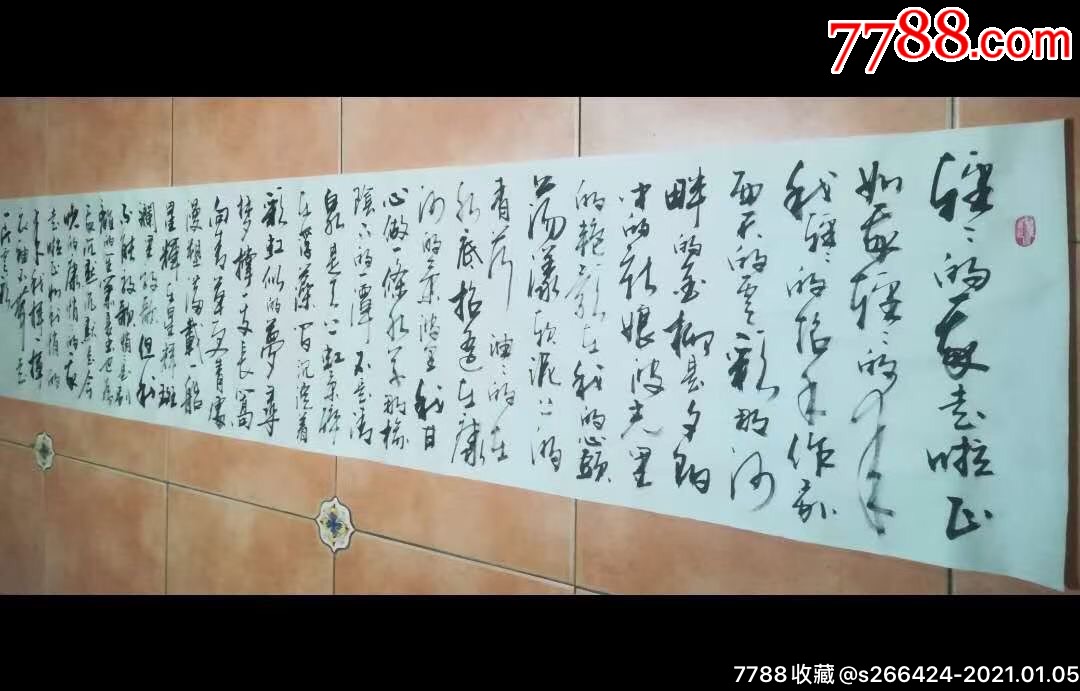 7788.com
轻々的我走啦正
如我轻々的来
我轻々的招手作别
西天的云彩那河
畔的金柳是夕阳
中的新娘波光里
的艳影在我的心头
荡漾软泥上的
青荇油々的在
水底招遥在康
河的柔波里我甘
心做一条水草那榆
阴下的一潭不是清
泉是天上虹柔碎
在浮藻间沉淀着
彩虹似的梦寻
梦撑一支长篙
向青草更青处
漫溯满载一船
星辉在星辉斑
斓里放歌但我
不能放歌悄々是别
离的笙箫夏虫也为
我沉默沉默是今
晚的康桥悄々的我
走啦正如我悄悄的
来我挥一挥
衣袖不带走
一片云彩
7788收藏@s266424-2021.01.05